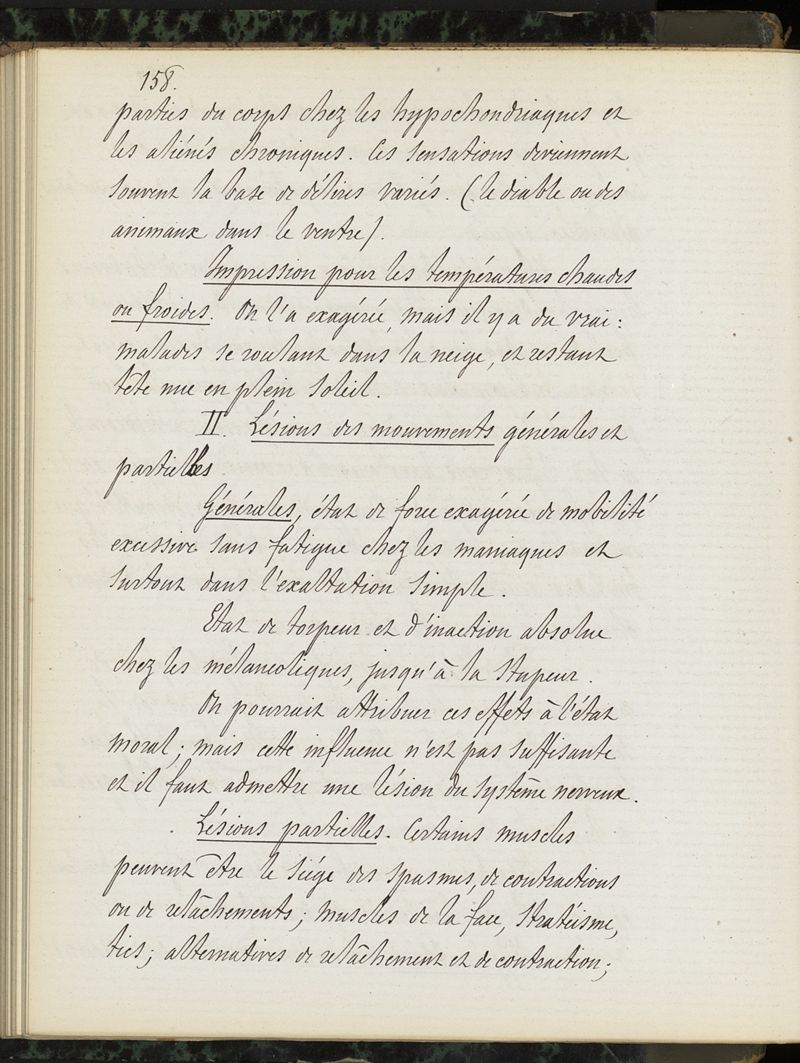 158.
parties du corps chez les hypochondriaques et
les aliénés chroniques. Ces sensations deviennent
souvent la base de délires variés. (le diable ou des
animaux dans le ventre).
Impression pour les températures chaudes
ou froides. On l'a exagérée, mais il y a du vrai :
malades se roulant dans la neige, et restant
tête nue en plein soleil.
II. Lésions des mouvements générales et
partielles
Générales, état de force exagérée de mobilité
excessive sans fatigue chez les maniaques et
surtout dans l'exaltation simple.
Etat de torpeur et d'inaction absolue
chez les mélancoliques, jusqu'à la stupeur.
On pourrait attribuer ces effets à l'état
moral ; mais cette influence n'est pas suffisante
et il faut admettre une lésion du système nerveux.
Lésions partielles. Certains muscles
peuvent être le siége des spasmes, de contractions
ou de relâchements ; muscles de la face, strabisme,
tics ; alternatives de relâchement et de contraction ;